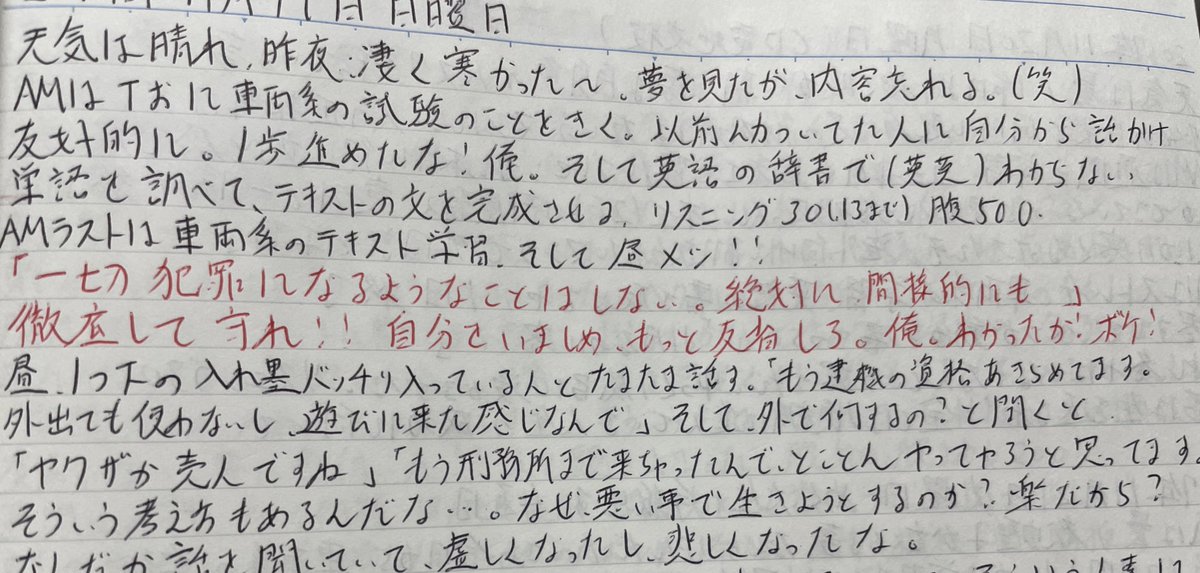 日 日曜日
天気は晴れ、昨夜、凄く寒かった〜。夢を見たが、内容忘れる。(笑)
AMはTおに車両系の試験のことをきく。以前ムカついてた人に自分から話かけ
友好的に。1歩進めたな!俺。そして英語の辞書で(英英)わからない
単語を調べて、テキストの文を完成させる。リスニング30(L13まで)腹500.
AMラストは車両系のテキスト学習、そして昼メシ!!
「一切犯罪になるようなことはしない…。絶対に、間接的にも」
徹底して守れ!!自分をいましめ、もっと反省しろ。俺。わかったか!ボケ!
昼、1つ下の入れ墨バッチリ入っている人とたまたま話す。「もう建機の資格あきらめてます。
外出ても使わないし、遊びに来た感じなんで」そして、外で何するの?と聞くと
「ヤクザか売人ですね」「もう刑務所まで来ちゃったんで、とことんやってやろうと思ってます。
そういう考え方もあるんだな…。なぜ、悪い事で生きようとするのか?楽だから?
なんだか話を聞いていて、虚しくなったし、悲しくなったな。